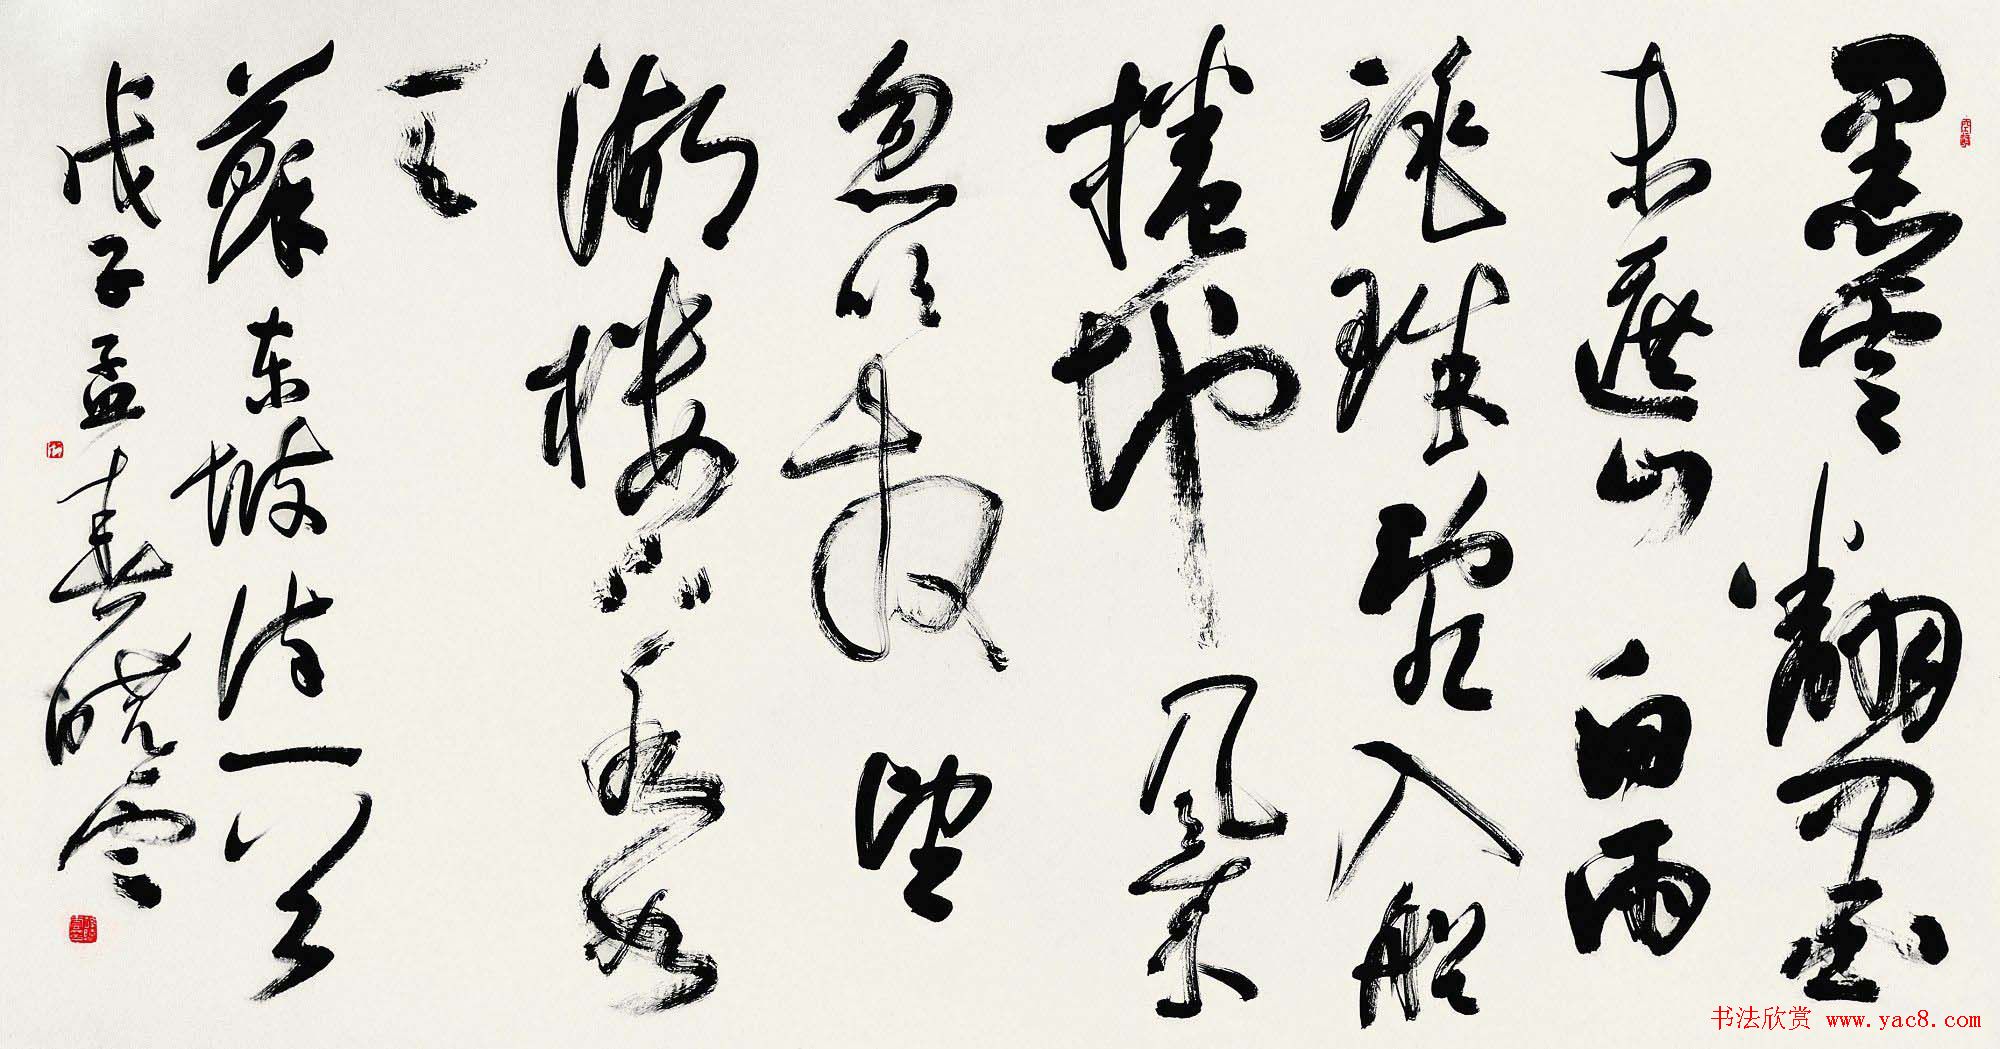 黑雲翻墨
未遮山白雨
跳珠亂入船
捲地風來
忽吹散望
湖樓下水如
天
蘇东坡诗一首
戊子孟春晓雲
书法欣赏 www.yac8.com